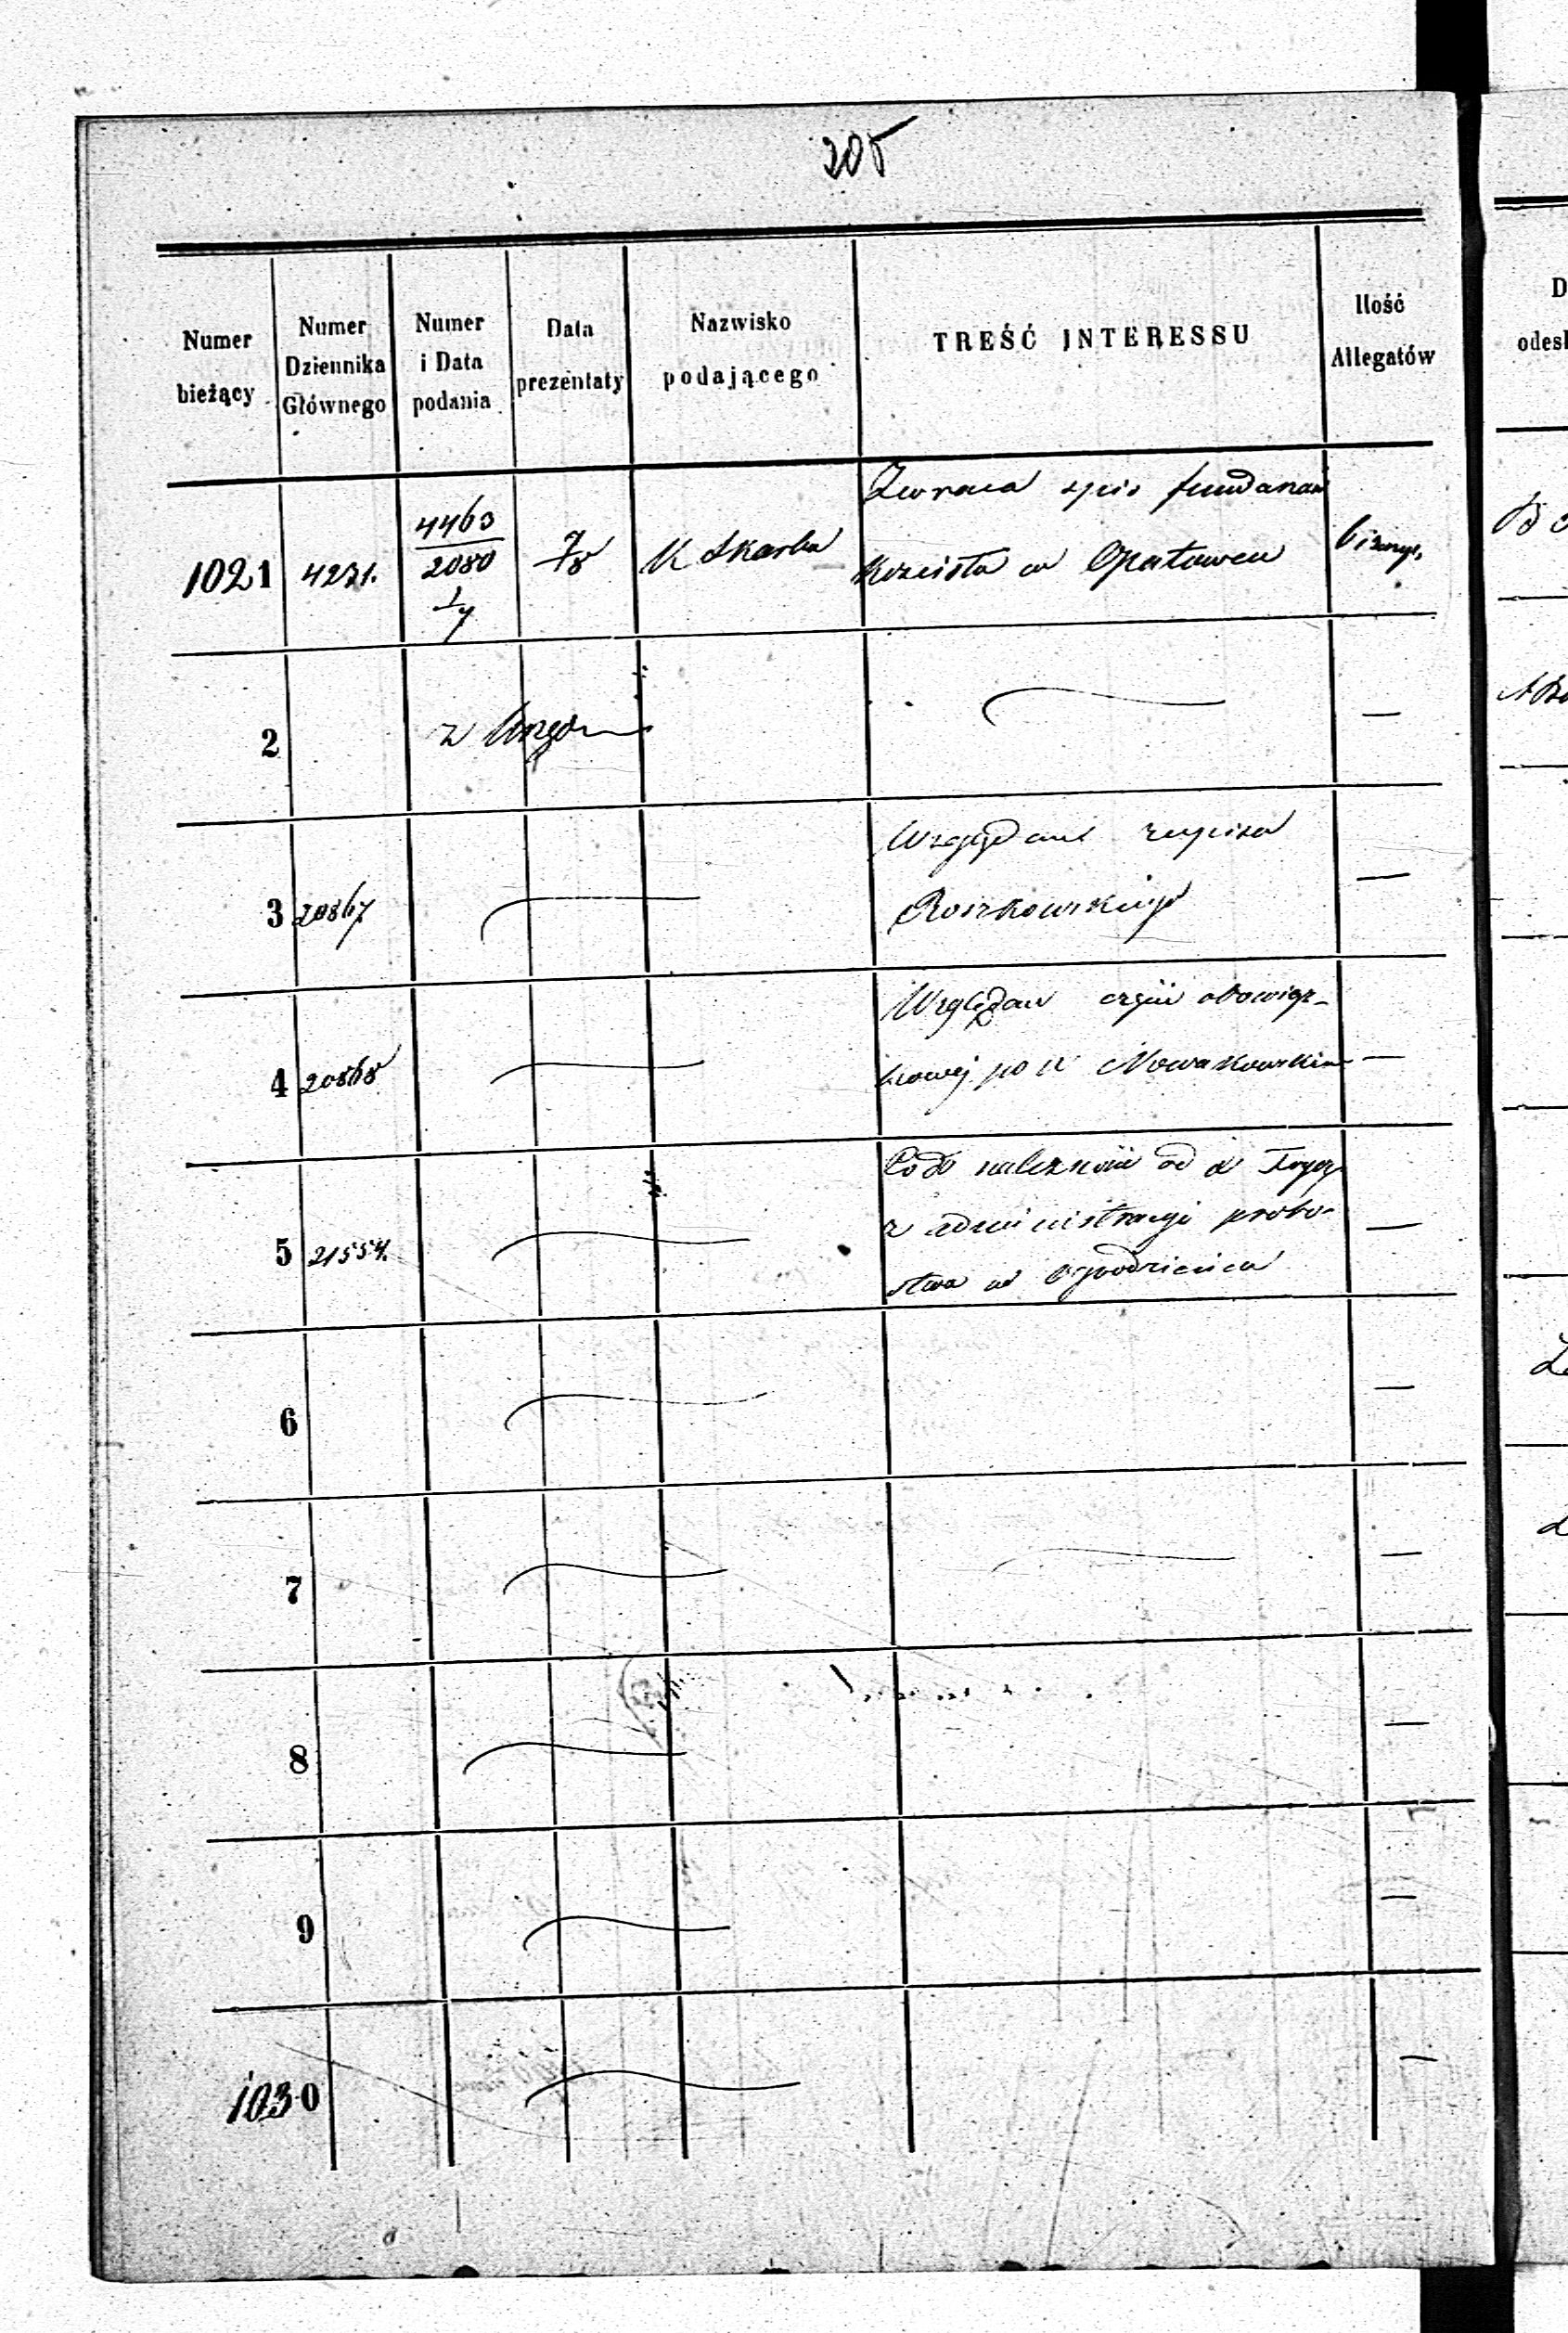 205
Numer bieżący
Numer Dziennika Głównego
Numer i Data podania
Data prezentaty
Nazwisko podającego
TREŚĆ INTERESSU
Ilość Allegatów
1021 4271. 4463/2080 1/7 7/8 K Skarbu Zwraca spis fundamen
kościoła w Opatowcu
2 z Urzędu
3 20867 Względem zapisu
Roszkowskiego
4 20868 Względem części obowiąz-
kowej po X Nowakowskim
5 21554. należności od X
z administracyi probo-
stwa w Ogrodzieńcu
6
7
8
9
1030
D
odesł